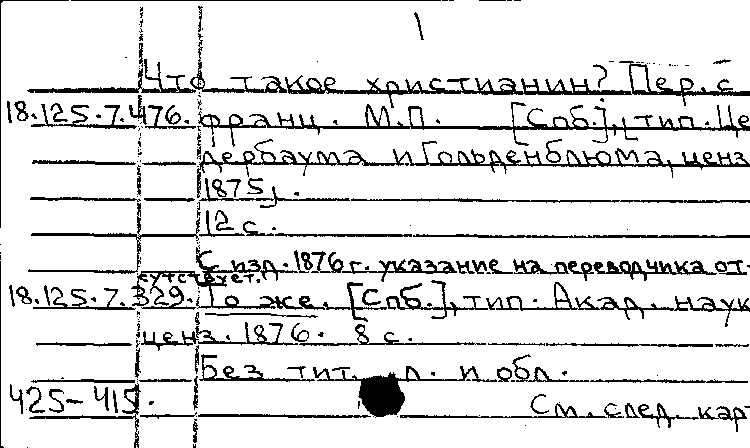 1
Что такое христианин? Пер. с
18.125.7.476. франц. М.П. [Спб.], [тип. Це
дербаума и Гольденблюма, ценз.
1875].
12 с.
С изд. 1876 г. указание на переводчика от-
сутствует.
18.125.7.329. То же. [Спб.], тип. Акад. наук
ценз. 1876. 8 с.
Без тит. л. и обл.
425-415. См. след. кар